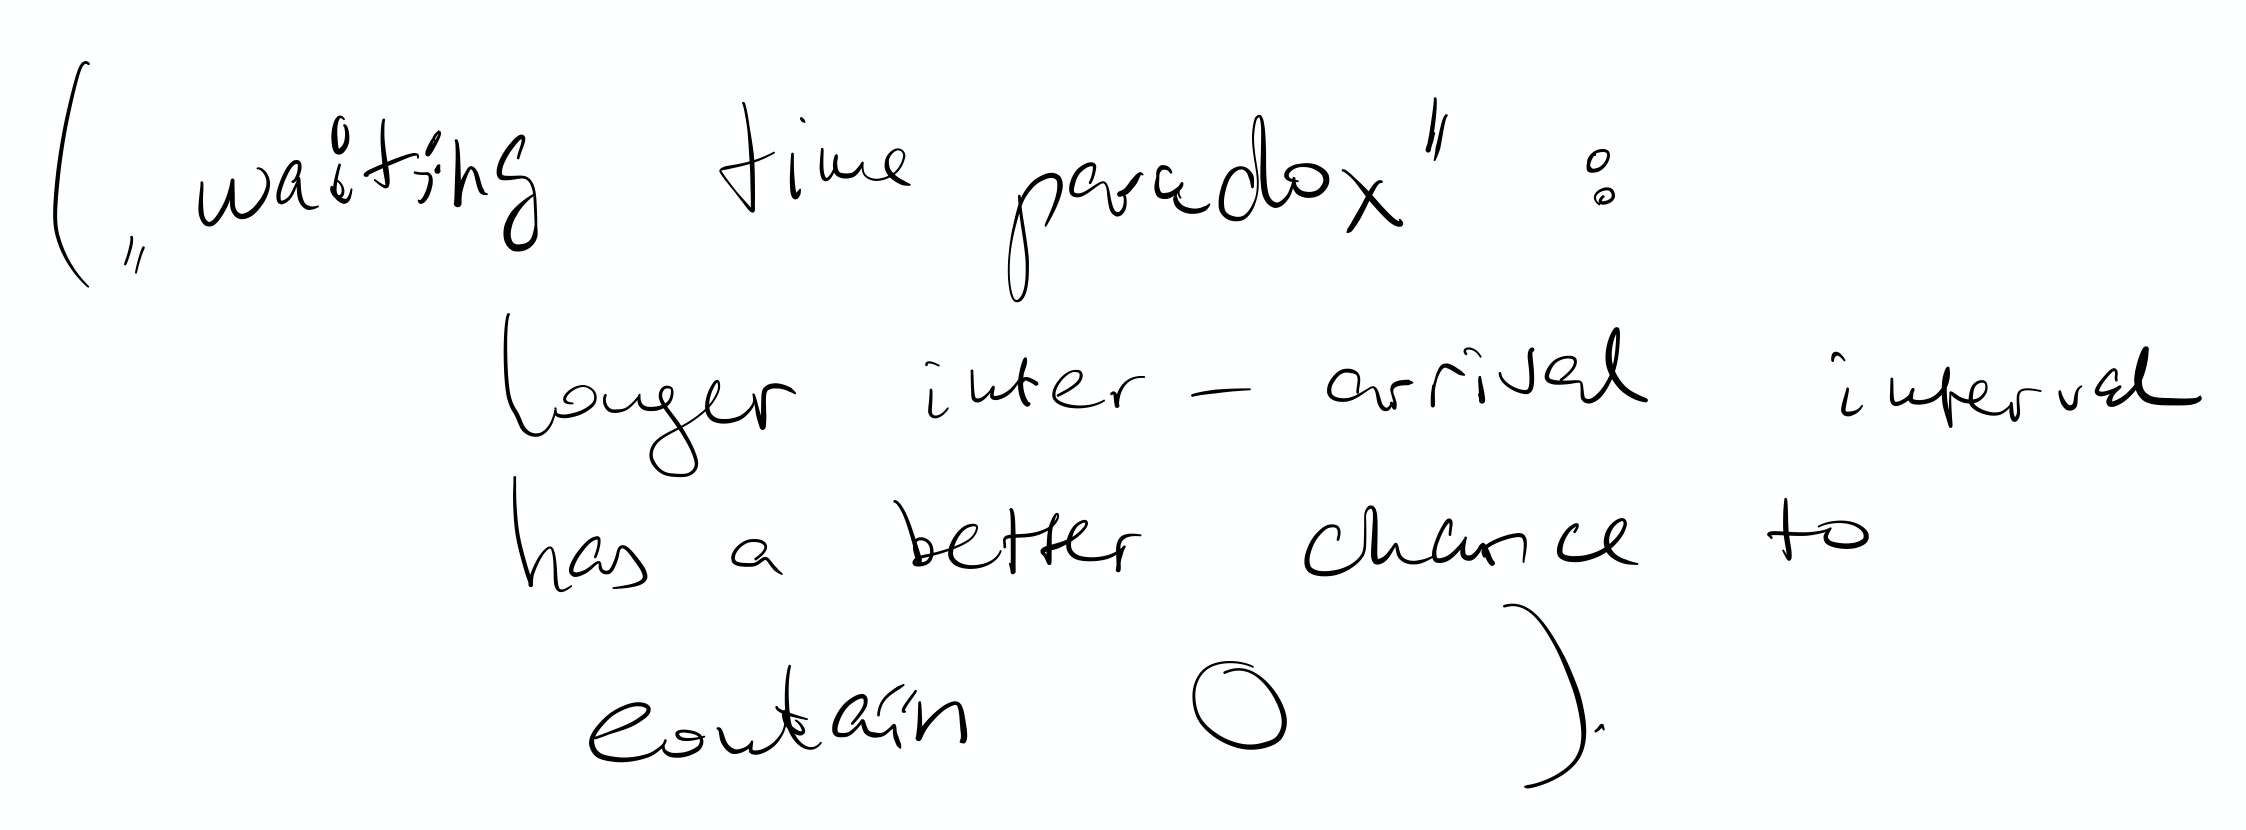 („waiting time paradox" :
longer inter-arrival interval
has a better chance to
contain 0).